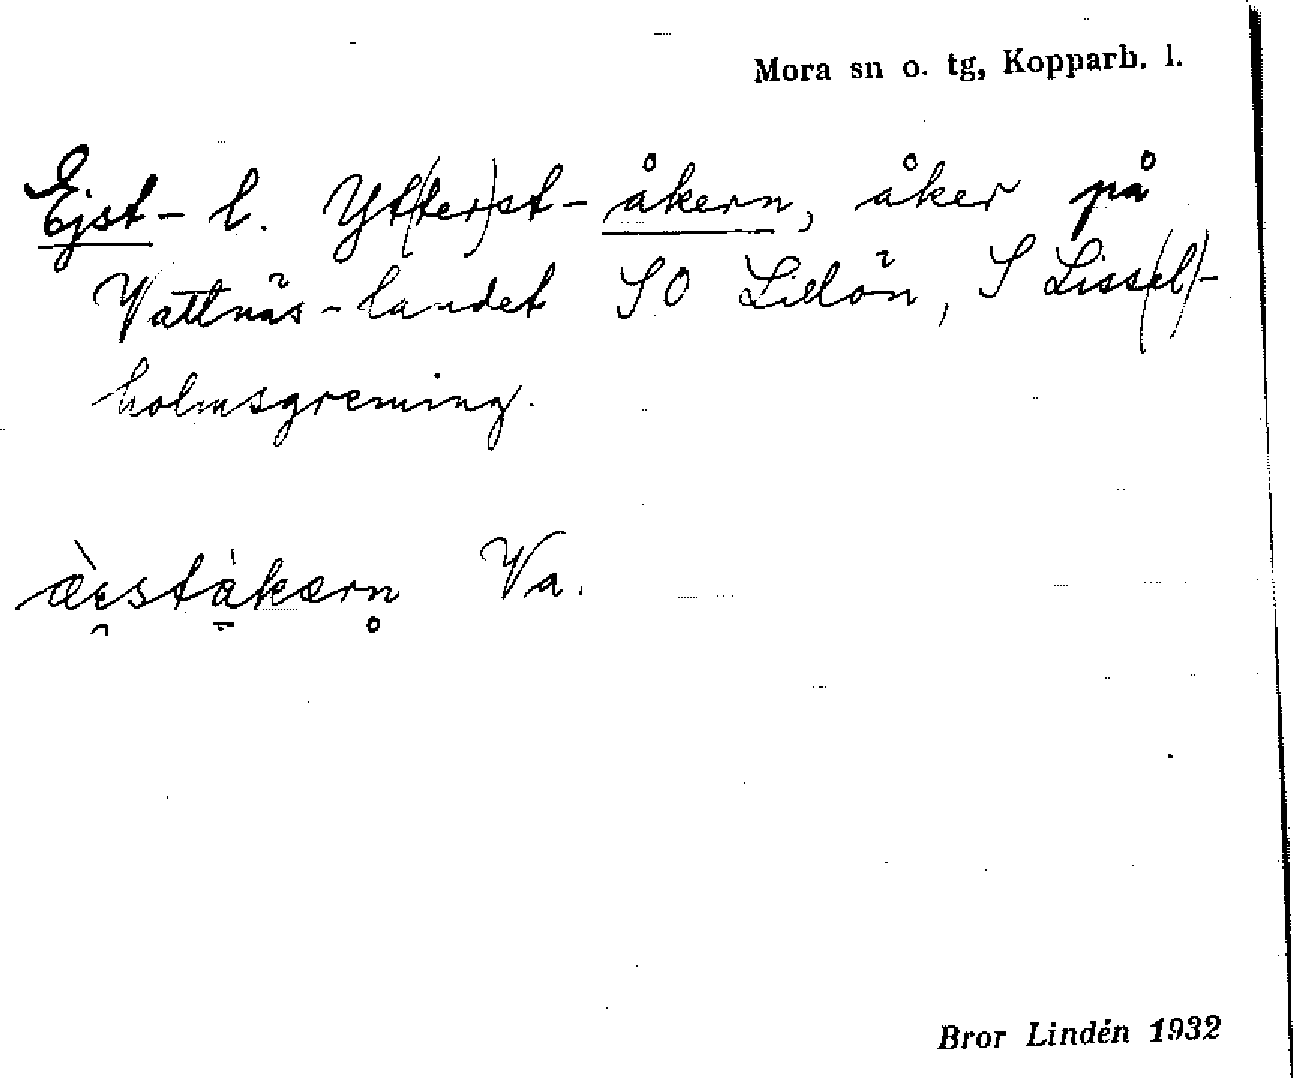 Mora sn o. tg, Kopparb. l.
Ejst- l. Yt(ter)st-åkern, åker på
Vattnäs-landet SO Lillön, S Liss(el)-
holmsgrening.
æ̀ɛstàkærn Va.
Bror Lindén 1932